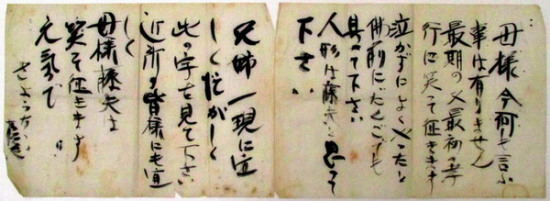 母様今何も言ふ
事は有りません
最期の又最初の孝
行に笑って征きます
泣かずによくやったと
佛前にだんごでも
具へて下さい
人形は藤夫と思って
下さい
兄姉一現に宜
しく
此の字を見て下さい
近所の皆様にも宜
しく
母様藤夫は
笑って征きます
元気で
さようなら